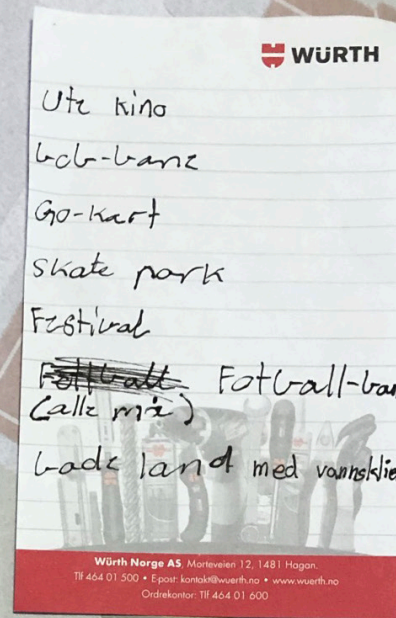 WÜRTH
Ute kino
bob-bane
Go-kart
Skate park
Festival
Fotball-ban
(alle mix)
bade land med vannsklie
Würth Norge AS, Morteveien 12, 1481 Hagan.
Tlf 464 01 500 • E-post: kontakt@wuerth.no • www.wuerth.no
Ordrekontor: Tlf 464 01 600